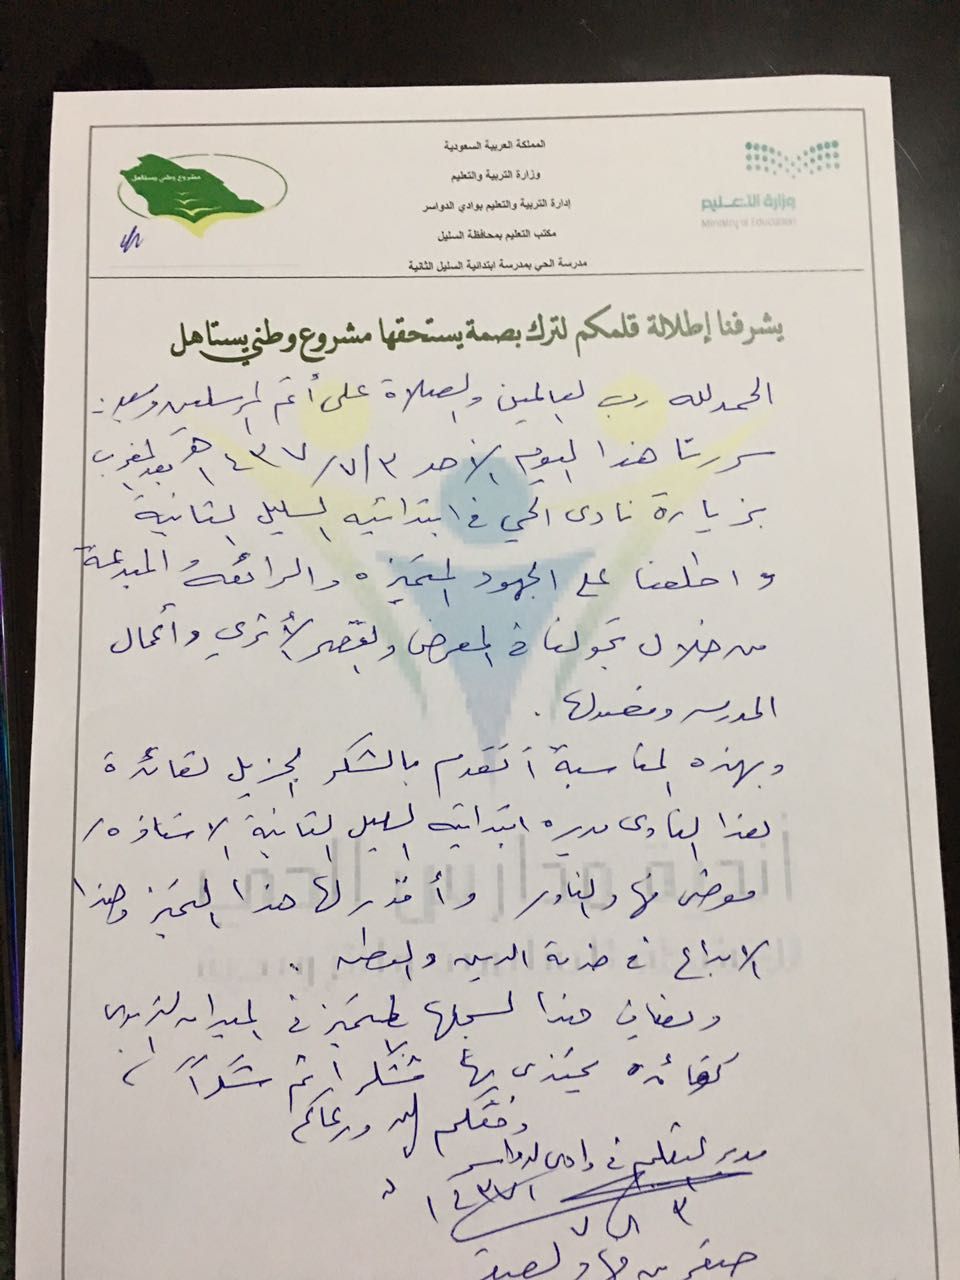 المملكة العربية السعودية
وزارة التربية والتعليم
إدارة التربية والتعليم بوادي الدواسر
مكتب التعليم بمحافظة السليل
مدرسة الحي بمدرسة ابتدائية السليل الثانية
مشروع وطني يستاهل
وزارة التعليم
Ministry of Education
يشرفنا إطلالة قلمكم لترك بصمة يستحقها مشروع وطني يستاهل
الحمد لله رب العالمين والصلاة على أتم المرسلين وبعد :
سررنا هذا اليوم الأحد ٣/٧/١٤٣٧هـ بعد المغرب
بزيارة نادي الحي في ابتدائية السليل الثانية
و اطلعنا على الجهود المتميزه والرائعه و المبدعة
من خلال تجولنا في المعرض والقصر الأثري وأعمال
المدرسه ومعملها .
وبهذه المناسبة أتقدم بالشكر الجزيل لقائدة
هذا النادي مديره ابتدائية السليل الثانية الاستاذه /
فهاد وأقدر لها هذا التميز وهذا
الابداع في خدمة الدين والوطن ..
هذا لسجلها المتميز في الميدان التربوي
كقائده يحتذى بها فشكرا ثم شكراً ،
وفقكم الله ورعاكم
مدير التعليم في وادي الدواسر
١٤٣٧
٣ / ٧
بن فهاد